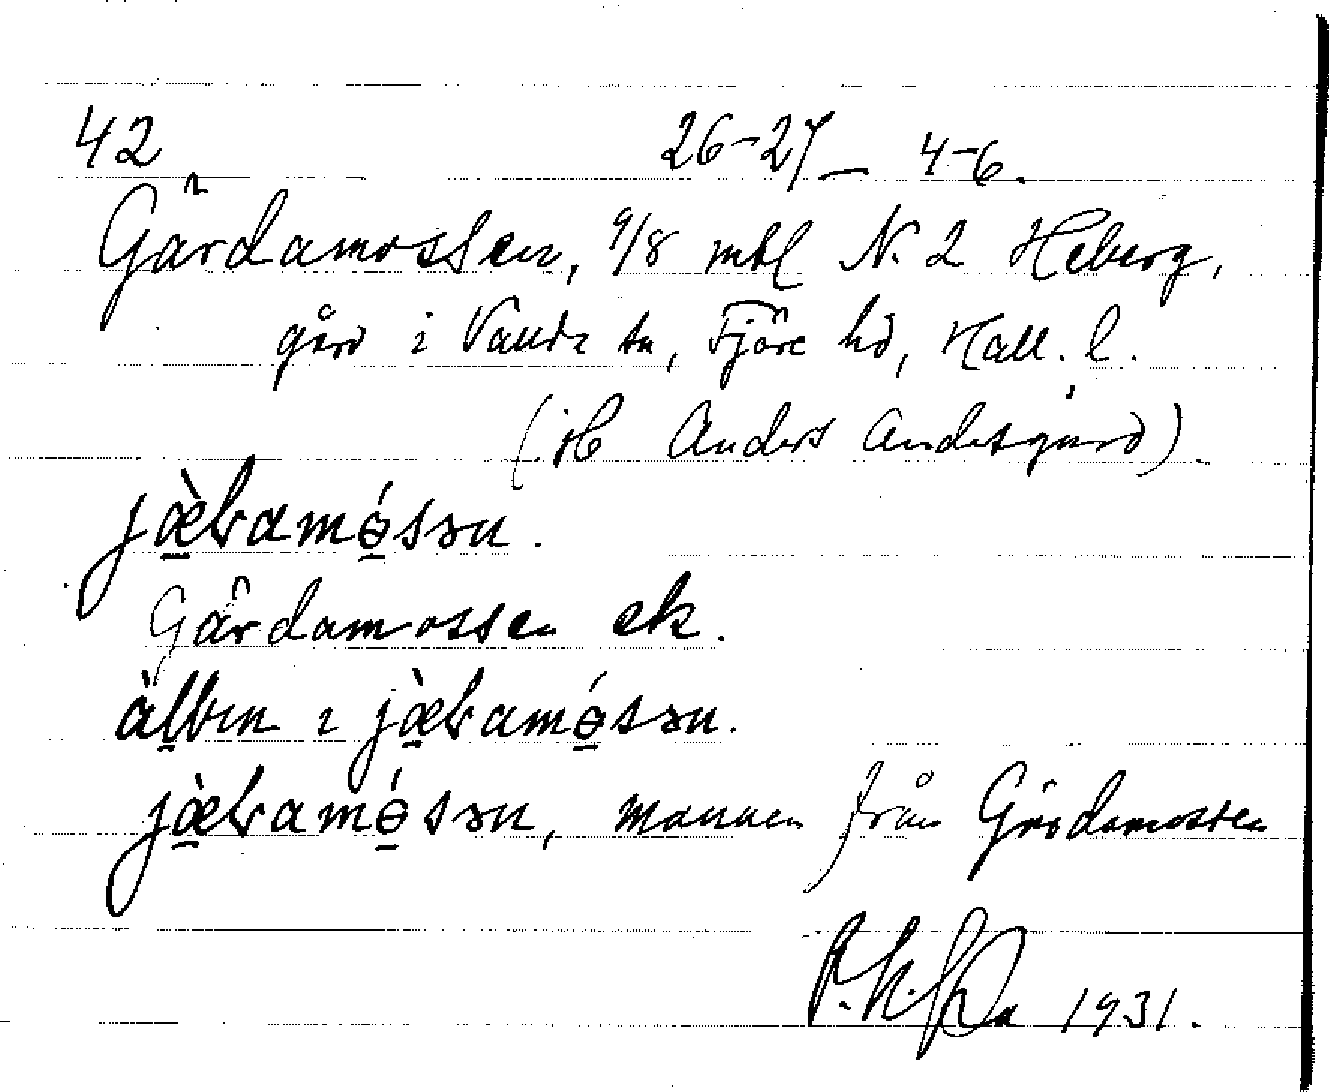 42 26-27 — 4-6.
Gärdamossen, 9/8 mtl N. 2 Heberg,
gård i Vanda sn, Fjäre hd, Hall. l.
Anders Andersgård).
jæ̀ramǿssən.
Gärdamossen ek.
i jæ̀ramǿssən.
jæ̀ramǿssən, mannen från Gärdamossen
1931.